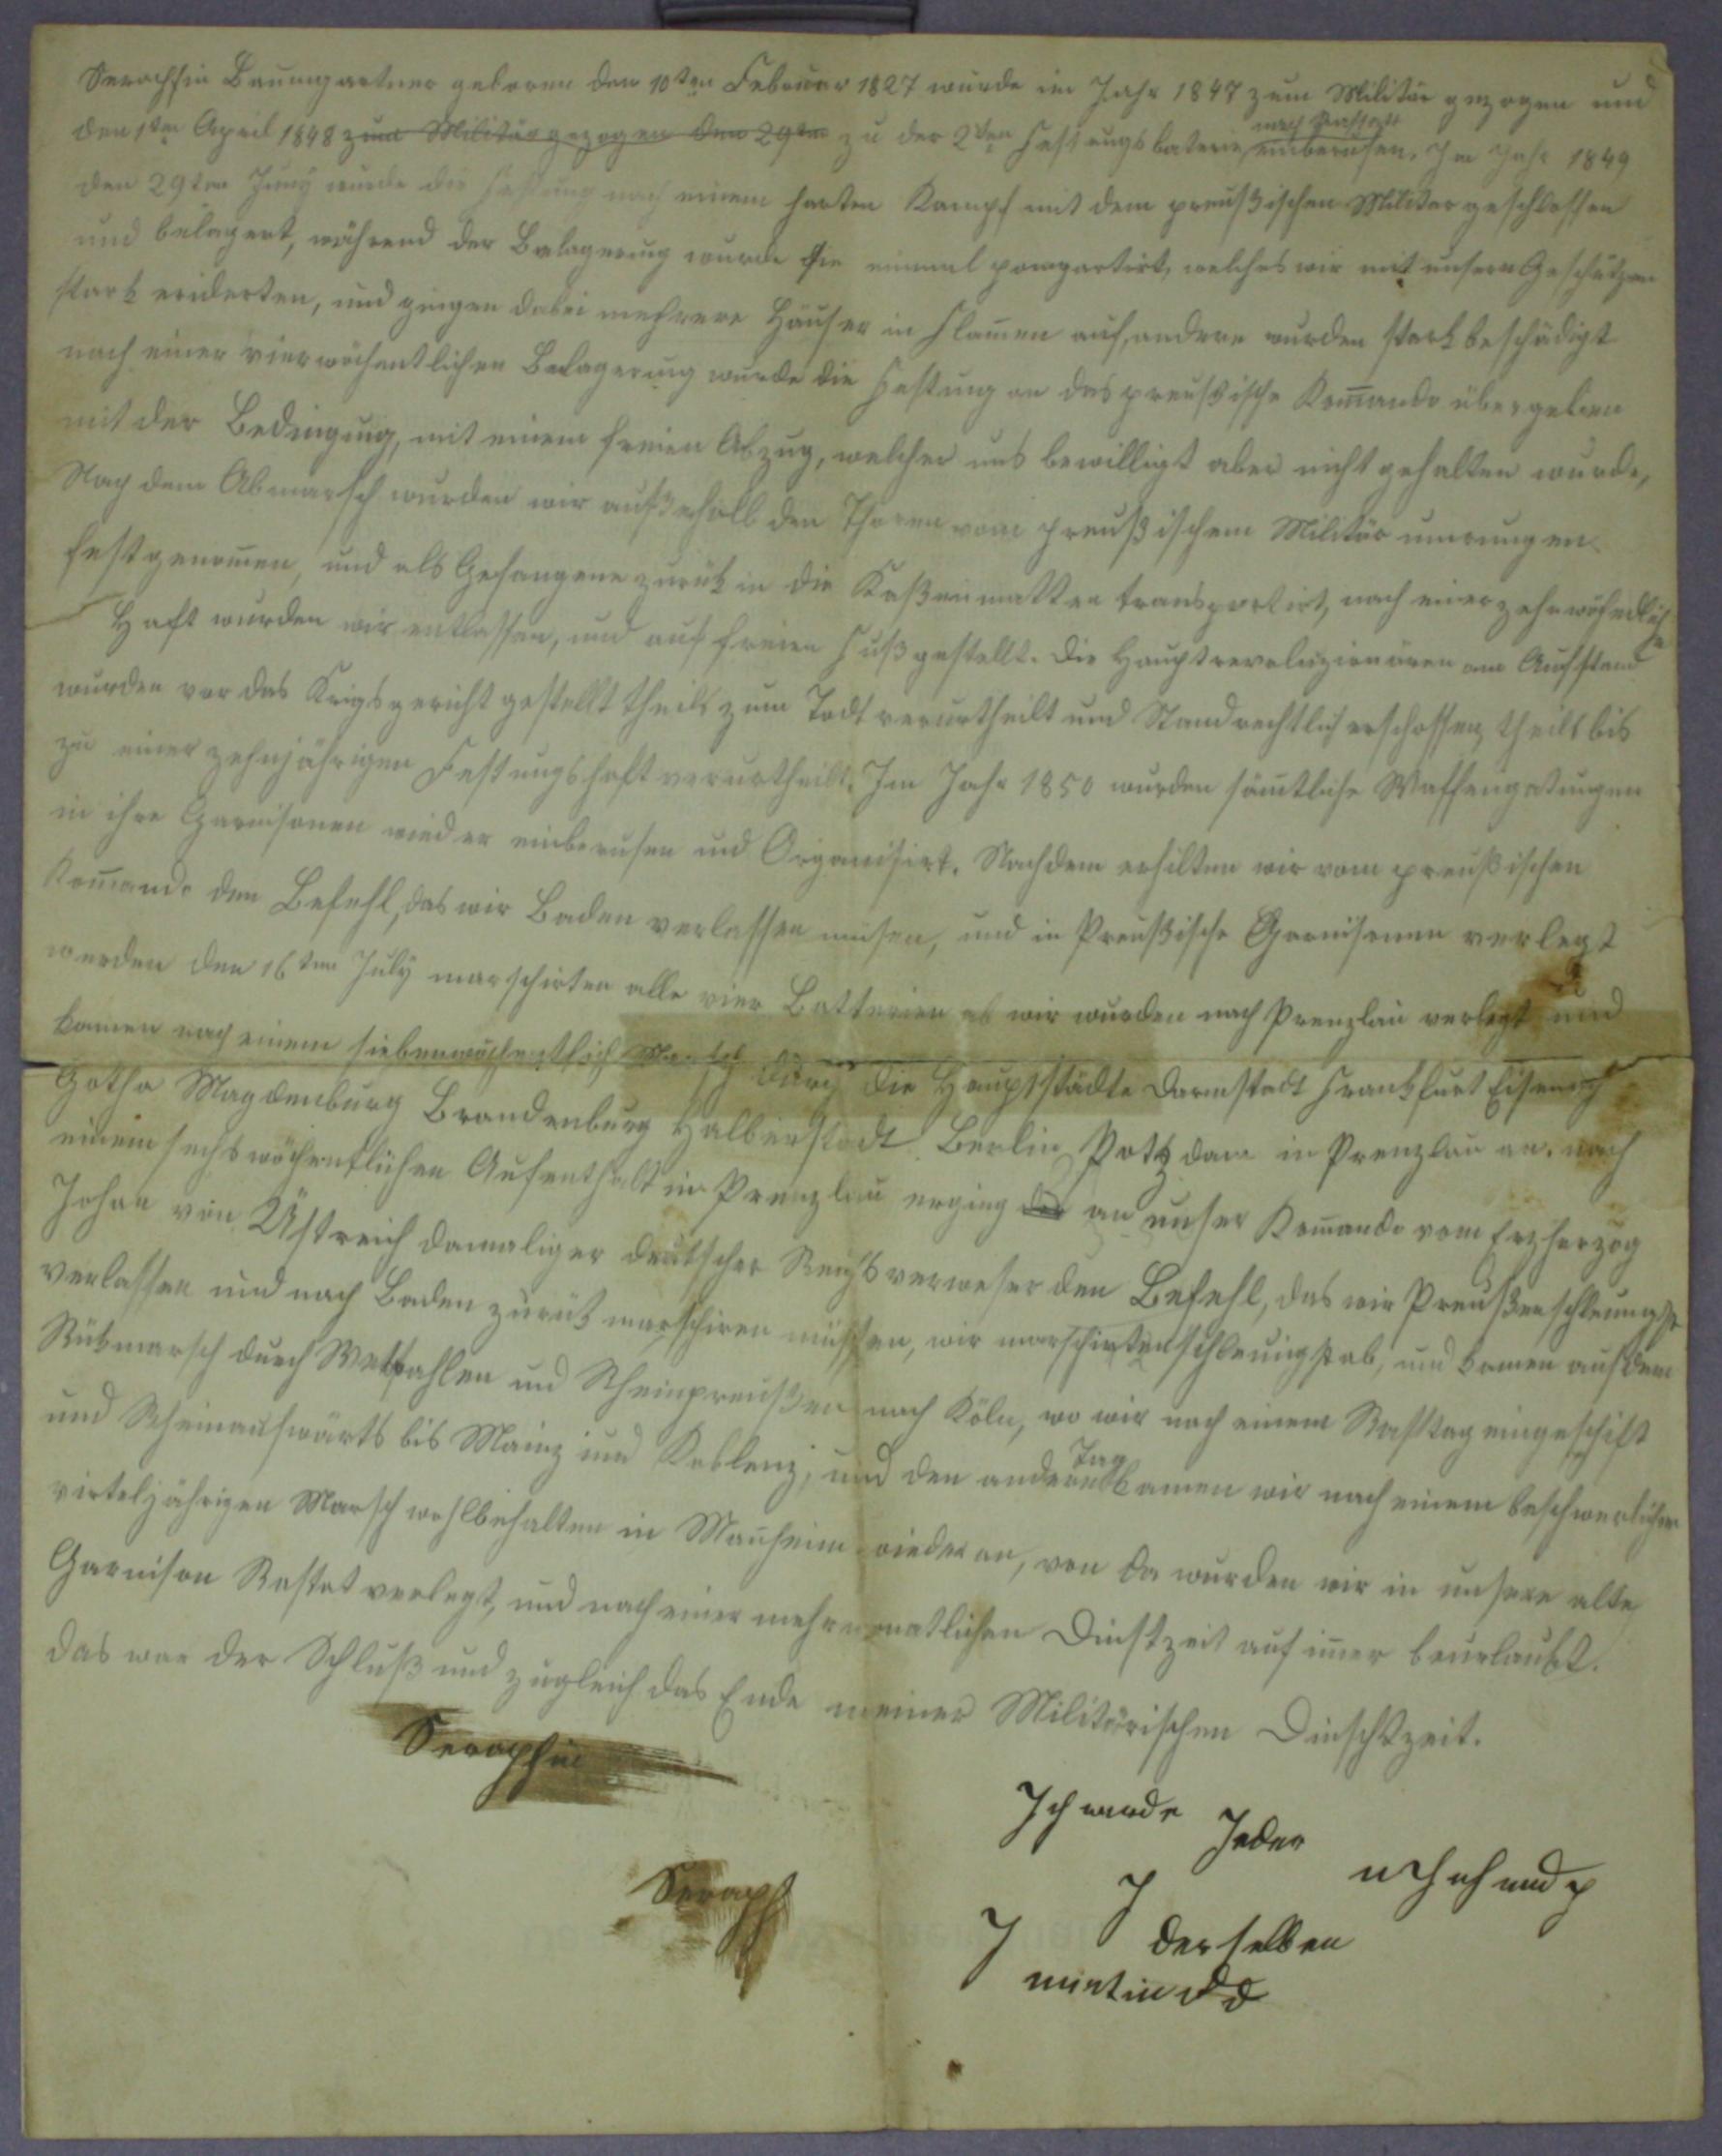 Seraphin Baumgartner geboren den 10ten Februar 1827 wurde im Jahr 1847 zum Militär gezogen und
den 1ten April 1848 zum Militär gezogen den 29ten zu der 2ten Festungsbaterie nach Rastatt einberufen. Im Jahr 1849
den 29ten Juny wurde die Festung nach einem harten Kampf mit dem preußischen Militär geschlossen
und belagert, während der Belagerung wurde sie einmal pompartirt, welches wir mit unsern Geschützen
stark eriderten, und gingen dabei mehrere Häuser in Flam̅en auf, andere wurden stark beschädigt
nach einer vierwöchentlichen Belagerung wurde die Festung an das preußische Kom̅ando übergeben
mit der Bedingung, mit einem freien Abzug, welcher uns bewilligt aber nicht gehalten wurde,
Nach dem Abmarsch wurden wir außerhalb den Thoren vom preußischem Militär umrungen
festgenom̅en, und als Gefangene zurük in die Kaßenmatten transportirt, nach einer zehnwöchedliche
Haft wurden wir entlassen, und auf freien Fuß gestellt. Die Hauptrevoluzionären am Aufstand
wurden vor das Krigsgericht gestellt theils zum Todt verurtheilt und Standrechtlich erschossen, theils bis
zu einer zehnjährigen Festungshaft verurtheilt. Im Jahr 1850 wurden säm̅tliche Waffengatungen
in ihre Garnisonen wieder einberufen und Organisirt. Nachdem erhilten wir vom preußischen
Kom̅ando den Befehl, das wir Baden verlassen müsen, und in Preußische Garnisonen verlegt
werden den 16ten July marschirten alle vier Batterien ab wir wurden nach Prenzlau verlegt und
kamen nach einem siebenwöchentlich Marsch durch die Hauptstädte Darmstadt Frankfurt Eisenach
Gotha Magdenburg Brandenburg Halberstadt Berlin Potzdam in Prenzlau an. nach
einem sechswöchentlichen Aufenthalt in Prenzlau erging an unser Kom̅ando vom Erzherzog
Johan von Östreich damaliger deutscher Reichsverweser den Befehl, das wir Preußen schleunigst
verlassen und nach Baden zurük marschiren müssen, wir marschirten schleunigst ab, und kamen auf dem
Rükmarsch durch Westpahlen und Rheinpreußen nach Köln, wo wir nach einem Rasttag eingeschift
und Rheinaufwärts bis Mainz und Koblenz, und den andern Tag kamen wir nach einem beschwerlichen
virteljährigen Marsch wohlbehalten in Man̅heim wieder an, von da wurden wir in unsere alte
Garnison Rastat verlegt, und nach einer mehrmonatlichen Dinstzeit auf im̅er beurlaubt.
Das war der Schluß und zugleich das Ende meiner Militärischen Dinschtzeit.
Seraphin
Seraph
Ich wurde
Jeder
J
J
derselben